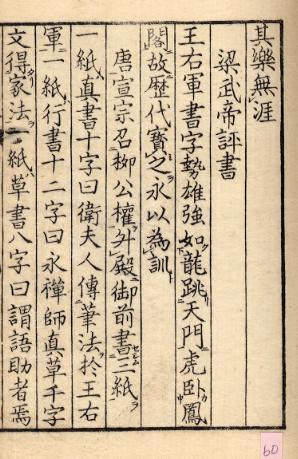 其樂無涯
梁武帝評書
王右軍書字勢雄強如龍跳天門虎卧鳳
閣故歷代寶之永以為訓
唐宣宗召柳公權外殿御前書三紙
一紙真書十字曰衛夫人傳筆法扵王右
軍一紙行書十二字曰永禪師真草千字
文得家法一紙草書八字曰謂語助者焉
60